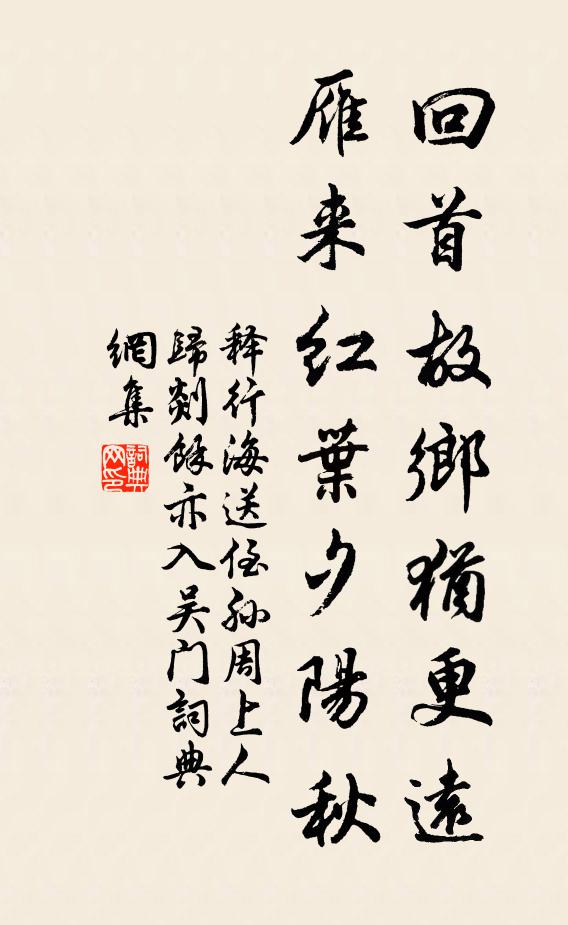 回首故鄉猶更遠
雁来红葉夕陽秋
释行海送侄孙周上人
歸剡餘亦入吴门詞典
網集
詞典
网印